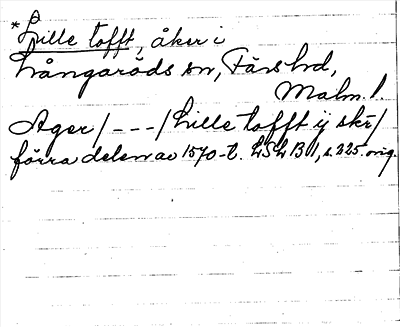 *Lille tofft, åker i
Långaröds sn, Färs hd,
Malm. l.
Ager/---/Lille tofft ij skr/
förra delen av 1570-t. LSLB 1, s. 225. orig.